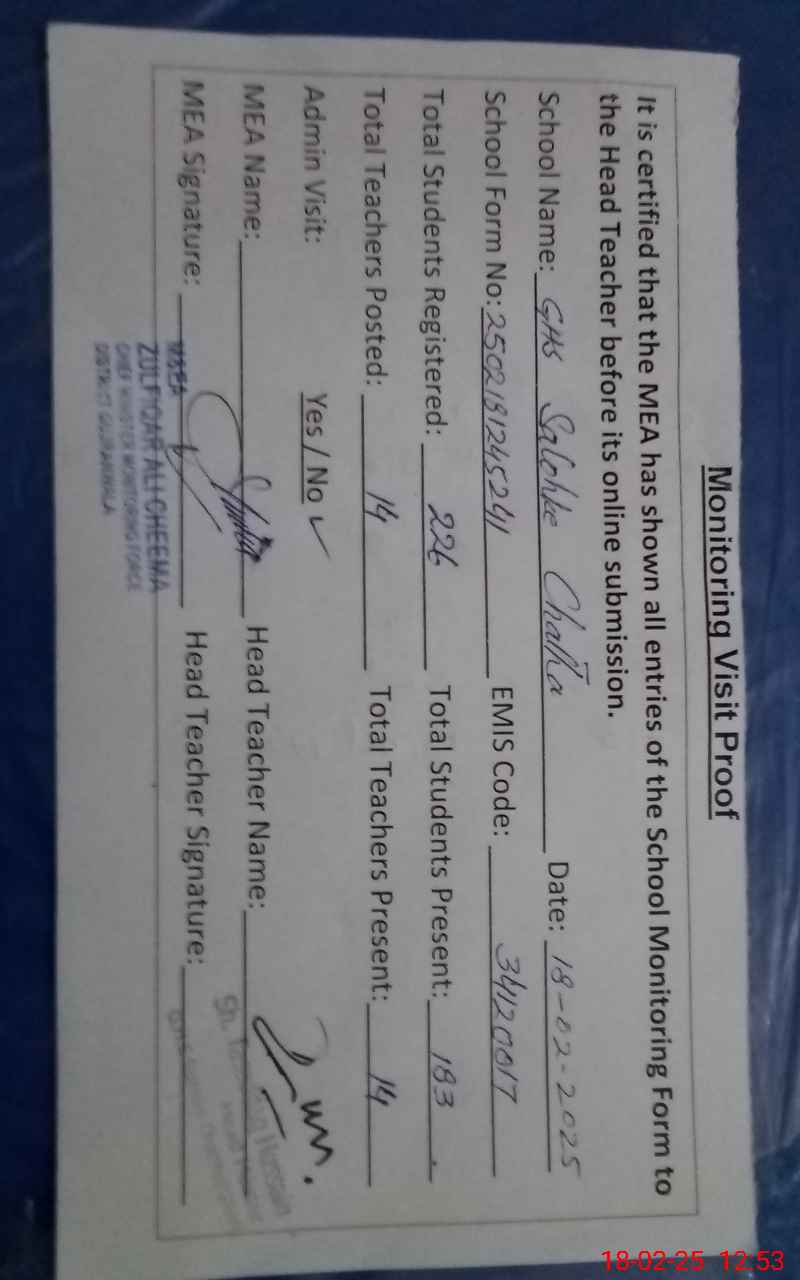 Monitoring Visit Proof
It is certified that the MEA has shown all entries of the School Monitoring Form to
the Head Teacher before its online submission.
School Name: GHS Salohke Chatta Date: 18-02-2025
School Form No: 2502181245241 EMIS Code: 34120017
Total Students Registered: 226 Total Students Present: 183
Total Teachers Posted: 14 Total Teachers Present: 14
Admin Visit: Yes / No ✓
MEA Name: Head Teacher Name:
MEA Signature: Head Teacher Signature:
MEA
ZULFIQAR ALI CHEEMA
CHIEF MINISTER MONITORING FORCE
DISTRICT GUJRANWALA
Hussain
18-02-25 12:53